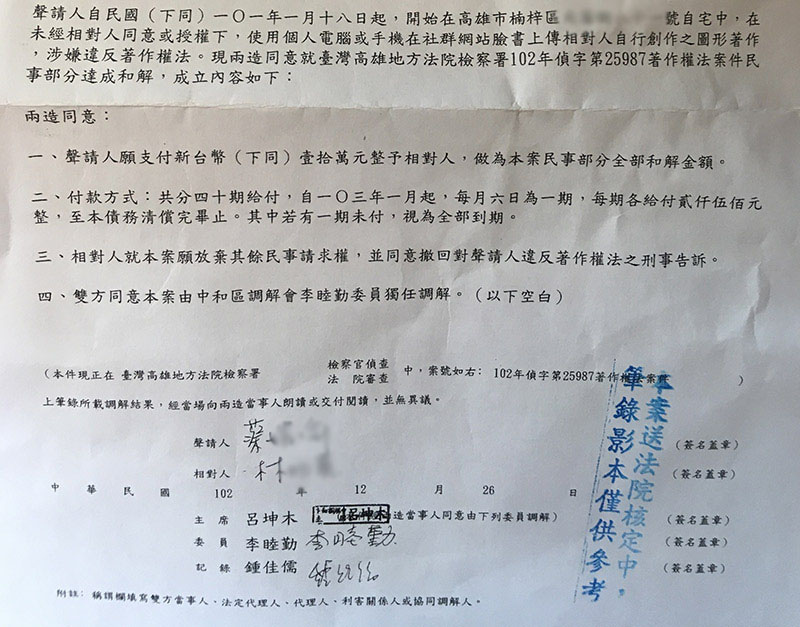 聲請人自民國（下同）一〇一年一月十八日起，開始在高雄市楠梓區 號自宅中，在
未經相對人同意或授權下，使用個人電腦或手機在社群網站臉書上傳相對人自行創作之圖形著作
，涉嫌違反著作權法。現兩造同意就臺灣高雄地方法院檢察署102年偵字第25987著作權法案件民
事部分達成和解，成立內容如下：
兩造同意：
一、聲請人願支付新台幣（下同）壹拾萬元整予相對人，做為本案民事部分全部和解金額。
二、付款方式：共分四十期給付，自一〇三年一月起，每月六日為一期，每期各給付貳仟伍佰元
整，至本債務清償完畢止。其中若有一期未付，視為全部到期。
三、相對人就本案願放棄其餘民事請求權，並同意撤回對聲請人違反著作權法之刑事告訴。
四、雙方同意本案由中和區調解會李睦勤委員獨任調解。（以下空白）
（本件現正在 臺灣高雄地方法院檢察署 檢察官偵查 法院審查 中，案號如右：102年偵字第25987著作權法案件 ）
上筆錄所載調解結果，經當場向兩造當事人朗讀或交付閱讀，並無異議。
聲請人 蔡 （簽名蓋章）
相對人 林 （簽名蓋章）
中 華 民 國 102 年 12 月 26 日
主席 呂坤木 呂坤木 造當事人同意由下列委員調解） （簽名蓋章）
委員 李睦勤 李睦勤 （簽名蓋章）
記錄 鍾佳儒 （簽名蓋章）
附註：稱謂欄填寫雙方當事人、法定代理人、代理人、利害關係人或協同調解人。
本案送法院核定中，
筆錄影本僅供參考